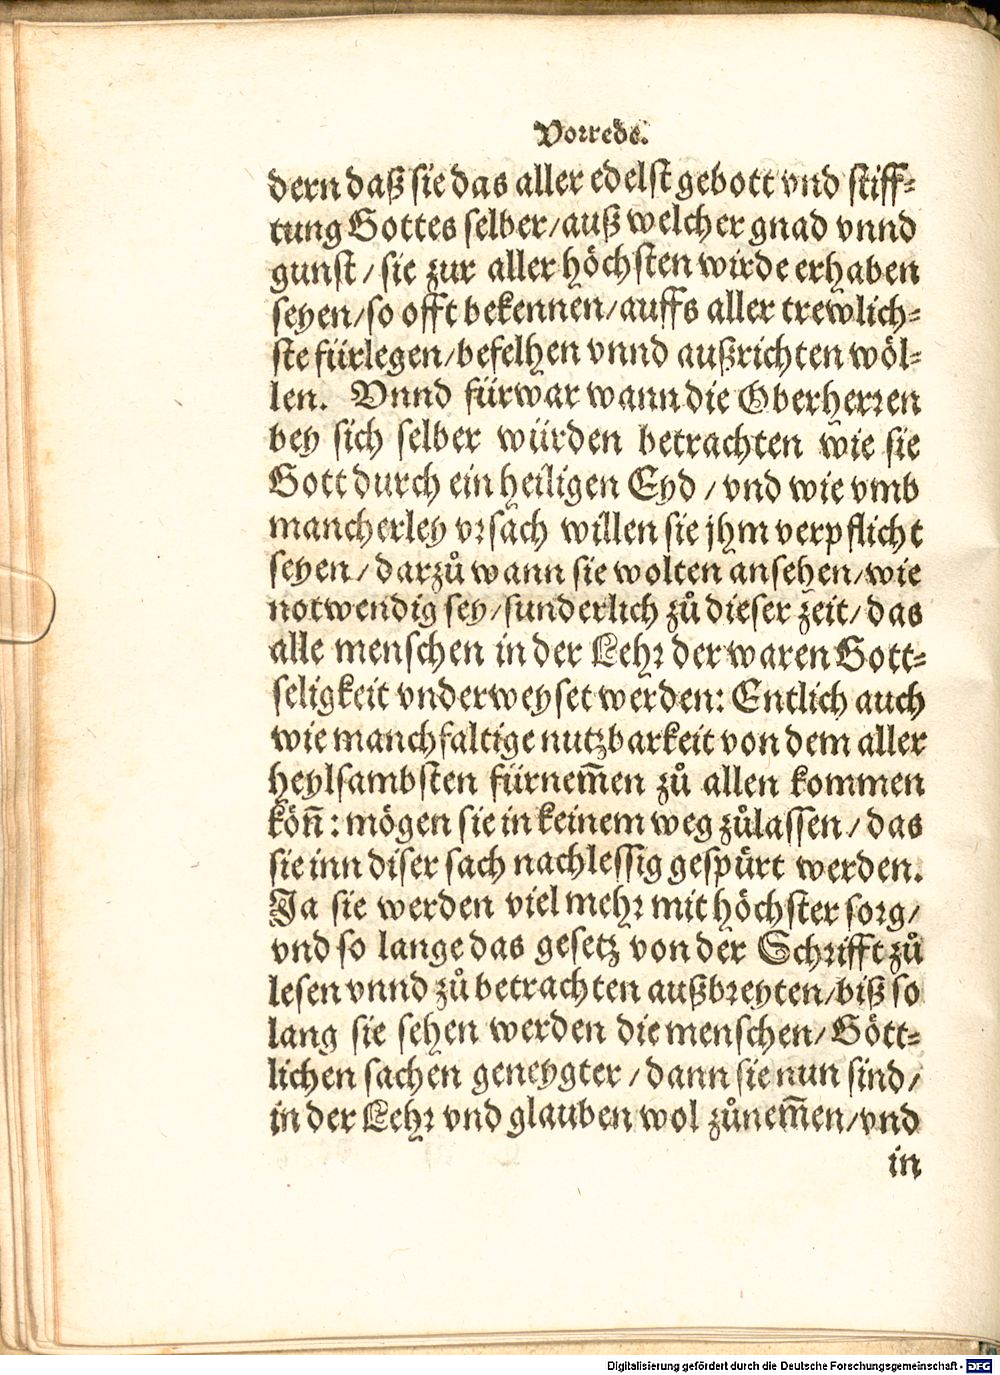 Vorrede.
dern daß sie das aller edelst gebott vnd stiff-
tung Gottes selber/auß welcher gnad vnnd
gunst/ sie zur aller höchsten wirde erhaben
seyen/so offt bekennen/auffs aller trewlich-
ste fürlegen/befelhen vnnd außrichten wöl-
len. Vnnd fürwar wann die Oberherren
bey sich selber würden betrachten wie sie
Gott durch ein heiligen Eyd/ vnd wie vmb
mancherley vrsach willen sie jhm verpflicht
seyen/ darzů wann sie wolten ansehen/wie
notwendig sey/sunderlich zů dieser zeit/ das
alle menschen in der Lehr der waren Gott-
seligkeit vnderweyset werden: Entlich auch
wie manchfaltige nutzbarkeit von dem aller
heylsambsten fürnem̃en zů allen kommen
köñ: mögen sie in keinem weg zůlassen/ das
sie inn diser sach nachlessig gespürt werden.
Ja sie werden viel mehr mit höchster sorg/
vnd so lange das gesetz von der Schrifft zů
lesen vnnd zů betrachten außbreyten/biß so
lang sie sehen werden die menschen/ Gött-
lichen sachen geneygter/ dann sie nun sind/
in der Lehr vnd glauben wol zůnem̃en/vnd
in
Digitalisierung gefördert durch die Deutsche Forschungsgemeinschaft - DFG